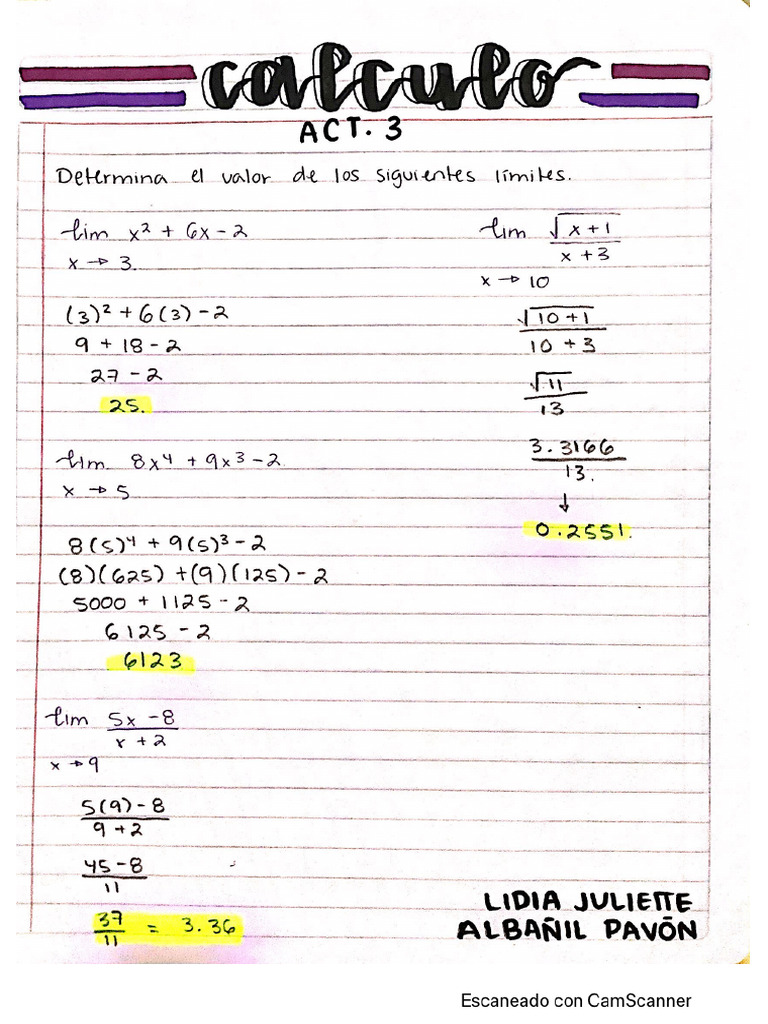 calculo
ACT. 3
Determina el valor de los siguientes límites.
lim x² + 6x - 2
x → 3.
(3)² + 6(3) - 2
9 + 18 - 2
27 - 2
25.
lim 8x⁴ + 9x³ - 2
x → 5
8(5)⁴ + 9(5)³ - 2
(8)(625) + (9)(125) - 2
5000 + 1125 - 2
6125 - 2
6123
lim 5x - 8
x + 2
x → 9
5(9) - 8
9 + 2
45 - 8
11
37
11
= 3.36
lim √x + 1
x + 3
x → 10
√10 + 1
10 + 3
√11
13
3.3166
13.
↓
0.2551.
LIDIA JULIETTE
ALBAÑIL PAVÓN
Escaneado con CamScanner